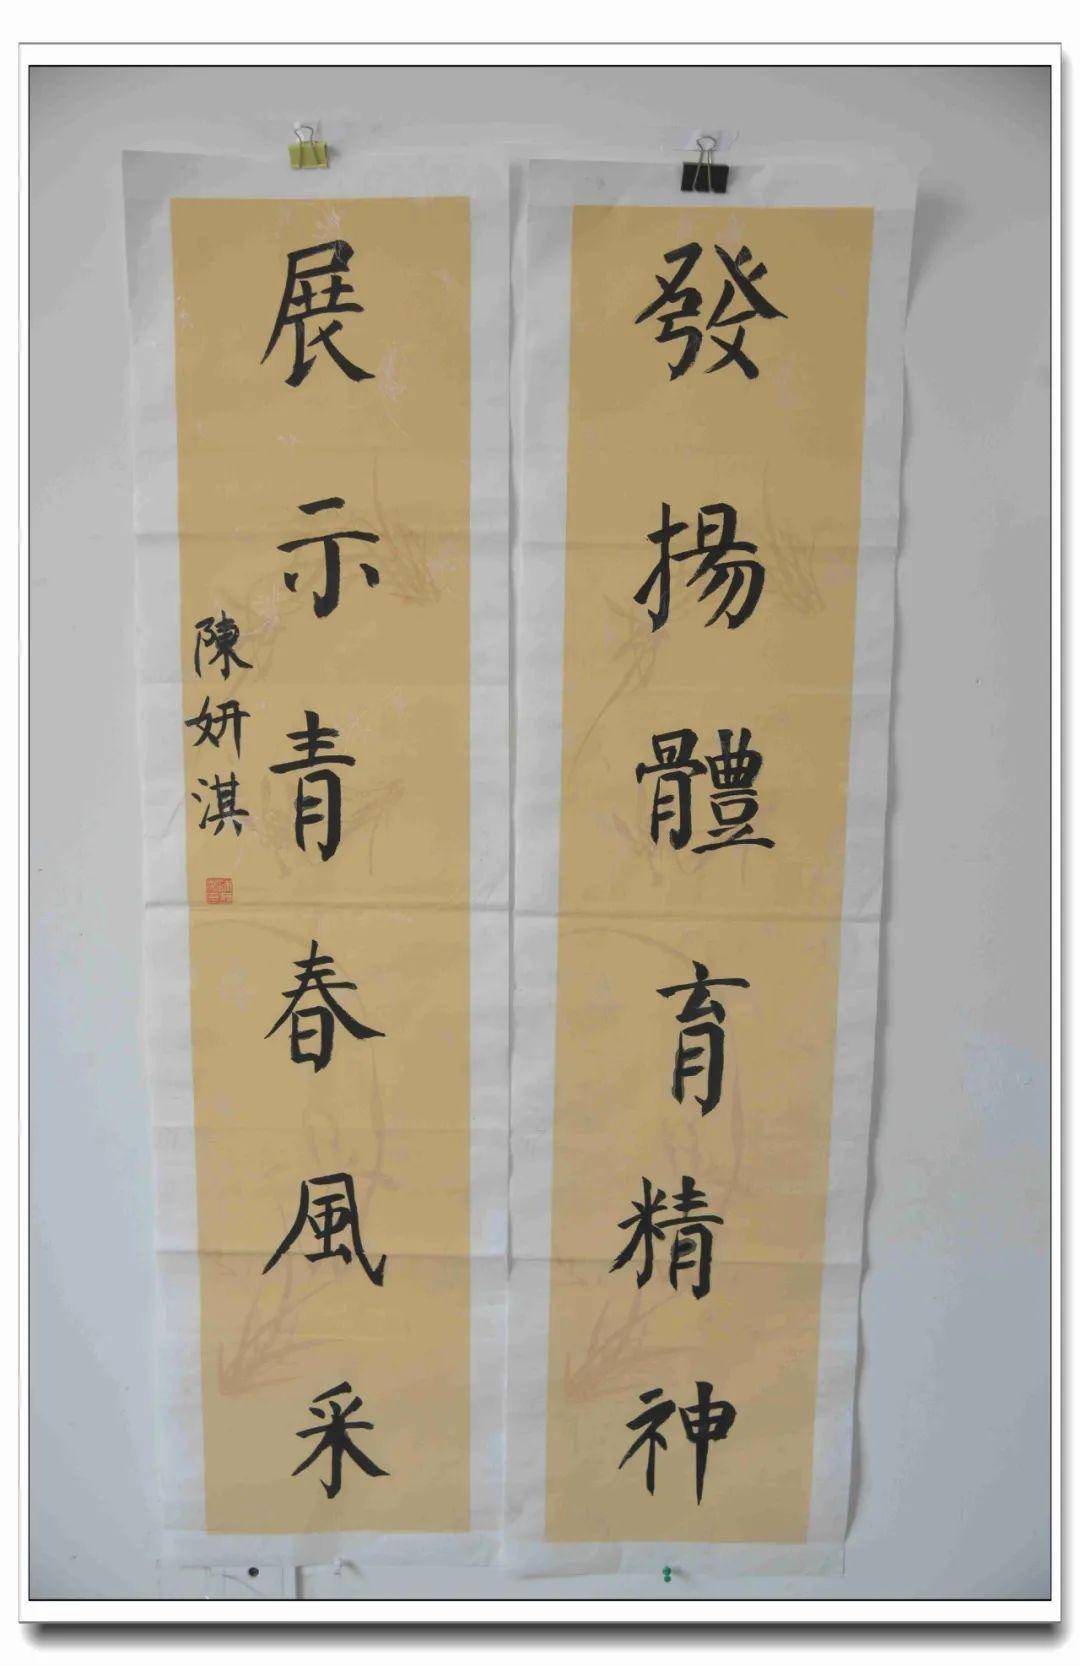 發揚體育精神
展示青春風采
陳妍淇